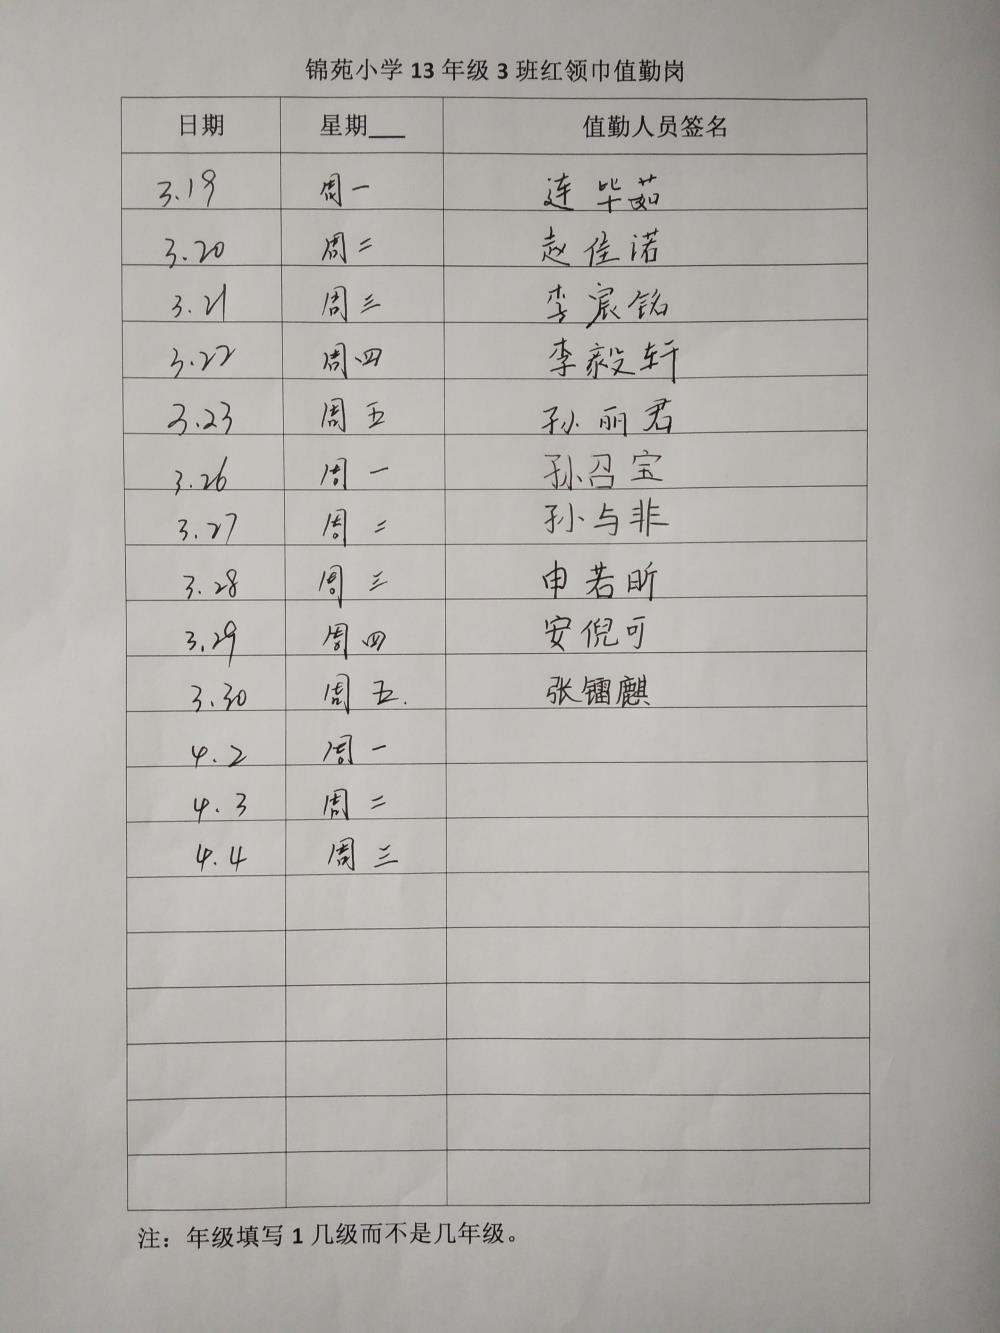 锦苑小学13年级3班红领巾值勤岗
日期 星期___ 值勤人员签名
3.19 周一 连毕茹
3.20 周二 赵佳诺
3.21 周三 李宸铭
3.22 周四 李毅轩
3.23 周五 孙丽君
3.26 周一 孙召宝
3.27 周二 孙与非
3.28 周三 申若昕
3.29 周四 安倪可
3.30 周五. 张镭麒
4.2 周一
4.3 周二
4.4 周三
注：年级填写1几级而不是几年级。